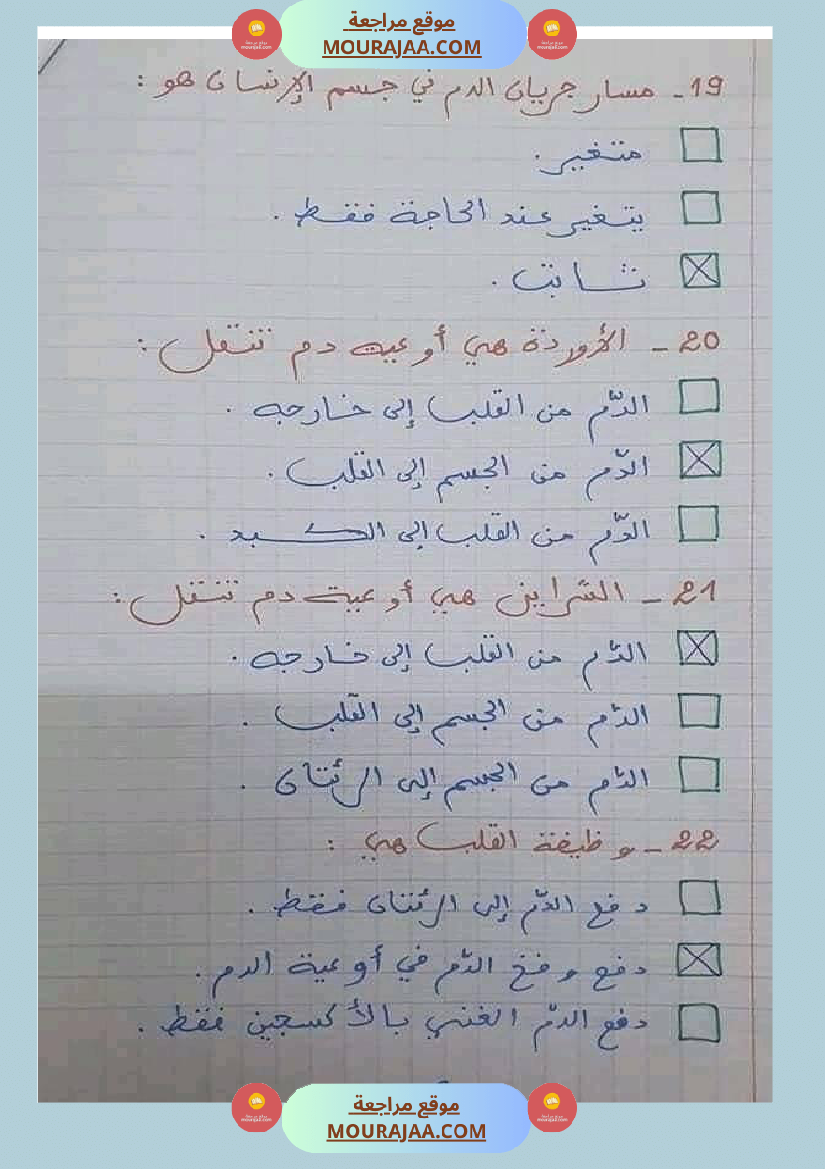 موقع مراجعة
MOURAJAA.COM
19- مسار جريان الدم في جسم الإنسان هو :
متغير.
يتغير عند الحاجة فقط .
ثابت .
20 - الأوردة هي أوعية دم تنتقل :
الدّم من القلب إلى خارجه .
الدّم من الجسم إلى القلب .
الدّم من القلب إلى الكبد .
21 - الشرايين هي أوعية دم تنتقل :
الدّم من القلب إلى خارجه .
الدّم من الجسم إلى القلب .
الدّم من الجسم إلى الرئتان .
22 - وظيفة القلب هي :
دفع الدّم إلى الرئتان فقط .
دفع وضخ الدّم في أوعية الدم .
دفع الدّم الغني بالأكسجين فقط .
موقع مراجعة
MOURAJAA.COM